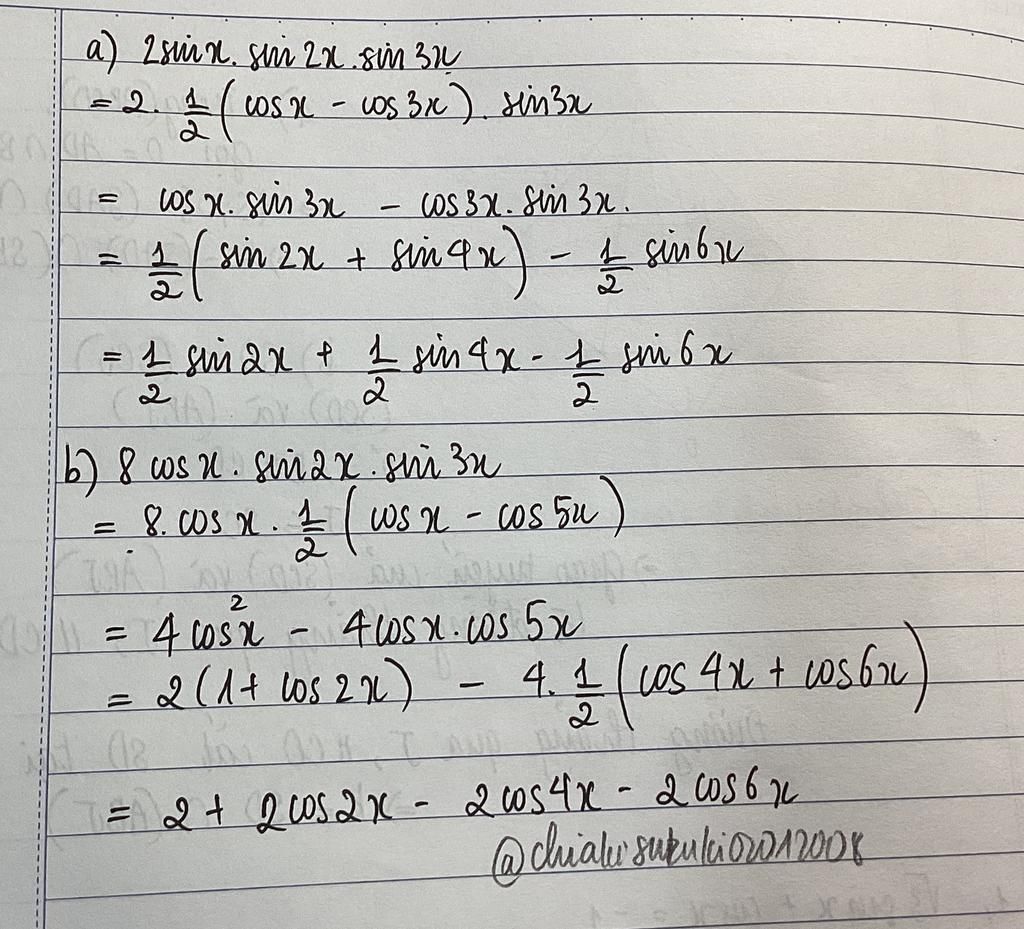 a) 2sinx. sin 2x. sin 3x
= 2. 1/2 (cosx - cos3x). sin3x
= cosx. sin 3x - cos3x. sin 3x.
= 1/2 (sin 2x + sin4x) - 1/2 sin6x
= 1/2 sin2x + 1/2 sin4x - 1/2 sin6x
b) 8 cosx. sin2x. sin 3x
= 8. cosx. 1/2 (cosx - cos5x)
= 4cos²x - 4cosx.cos5x
= 2(1+ cos2x) - 4. 1/2 (cos4x + cos6x)
= 2 + 2cos2x - 2cos4x - 2cos6x